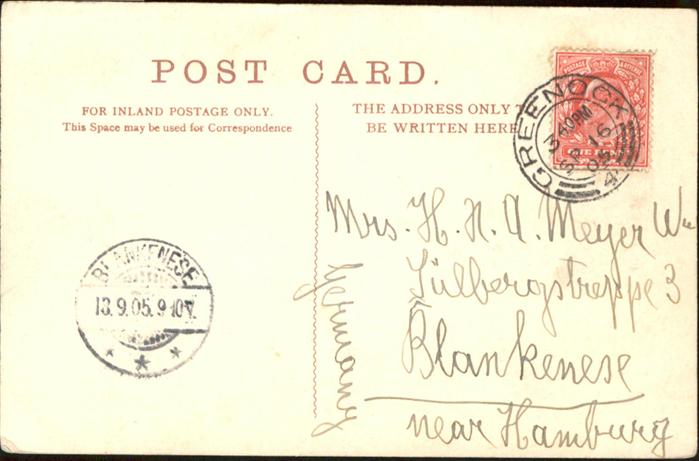 POST CARD.
FOR INLAND POSTAGE ONLY.
This Space may be used for Correspondence
THE ADDRESS ONLY
BE WRITTEN HERE
GREENOCK
3 40PM
SP 16
05
4
BLANKENESE
13.9.05.9-10V.
Mrs. H. H. A. Meyer Wu
Sülbergstreppe 3
Blankenese
near Hamburg
Germany